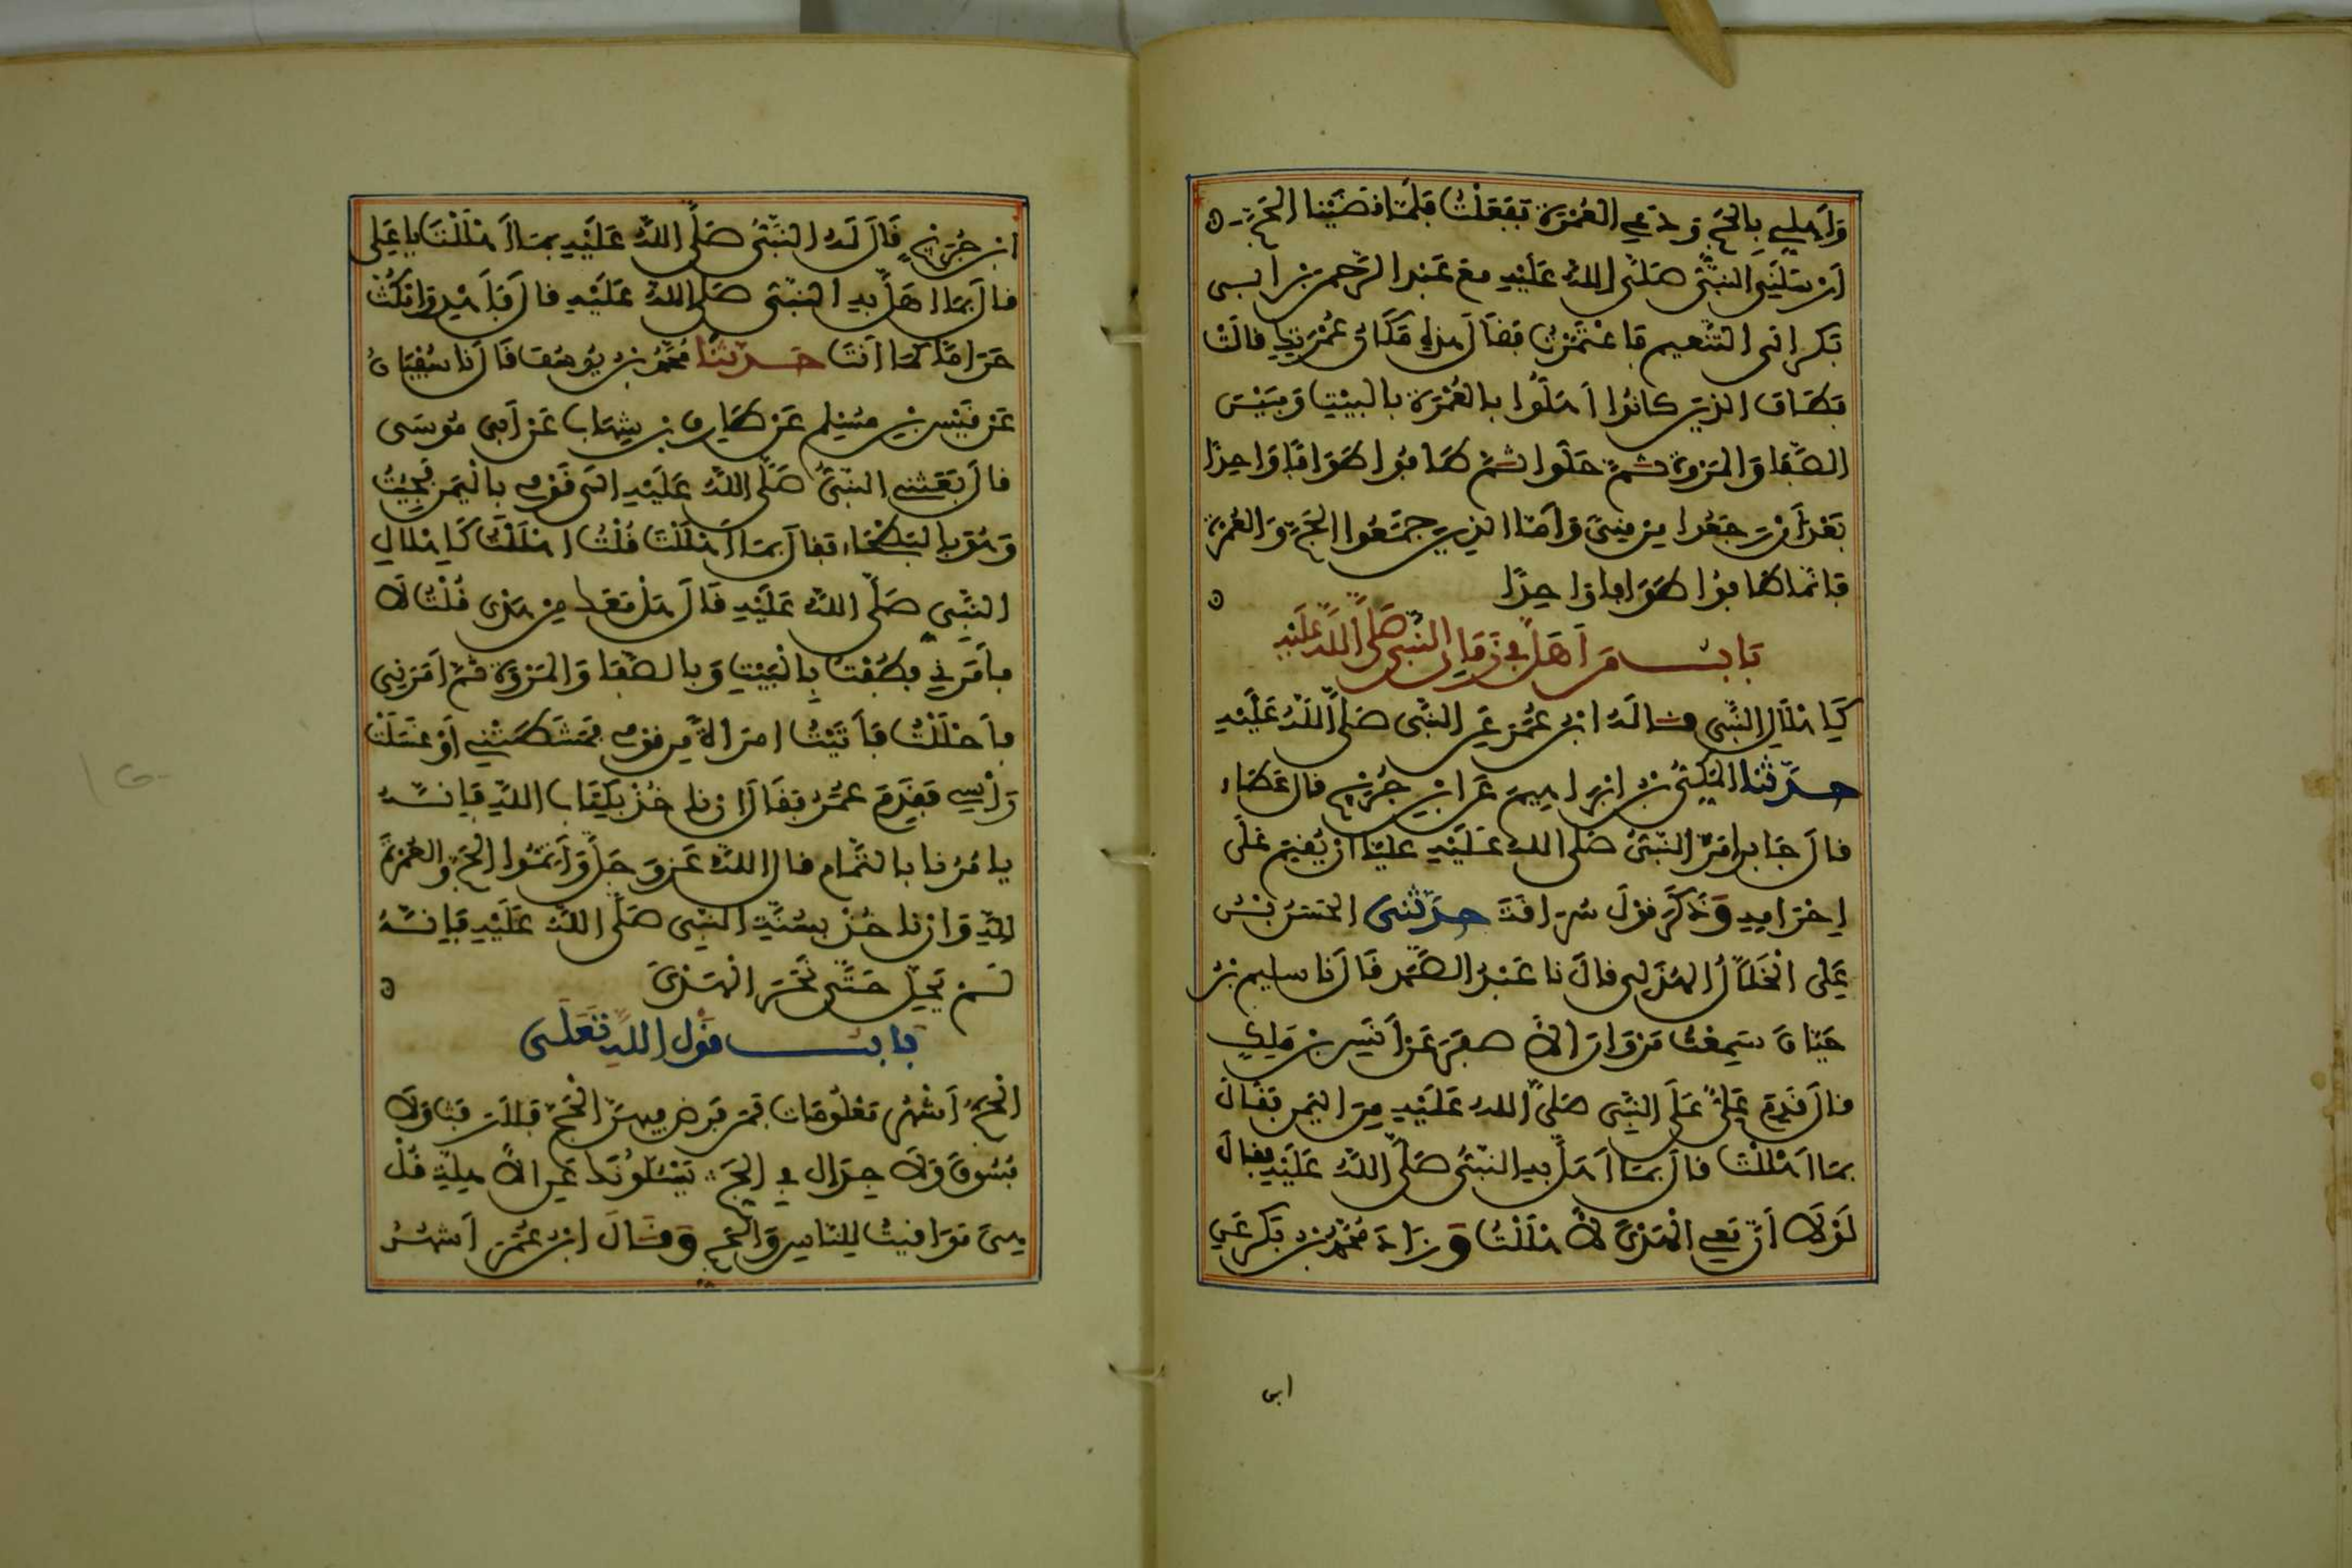 وَأَهِلِّي بِالحَجِّ وَدَعِي العُمْرَةَ فَفَعَلْتُ فَلَمَّا قَضَيْنَا الحَجَّ
أَرْسَلَنِي النَّبِيُّ صَلَّى اللَّهُ عَلَيْهِ مَعَ عَبْدِ الرَّحْمٰنِ بْنِ أَبِي
بَكْرٍ إِلَى التَّنْعِيمِ فَاعْتَمَرْتُ فَقَالَ هَذِهِ مَكَانُ عُمْرَتِكِ قَالَتْ
فَطَافَ الَّذِينَ كَانُوا أَهَلُّوا بِالعُمْرَةِ بِالبَيْتِ وَبَيْنَ
الصَّفَا وَالمَرْوَةِ ثُمَّ حَلُّوا ثُمَّ طَافُوا طَوَافًا وَاحِدًا
بَعْدَ أَنْ رَجَعُوا مِنْ مِنًى وَأَمَّا الَّذِينَ جَمَعُوا الحَجَّ وَالعُمْرَةَ
فَإِنَّمَا طَافُوا طَوَافًا وَاحِدًا
بَابُ مَنْ أَهَلَّ فِي زَمَانِ النَّبِيِّ صَلَّى اللَّهُ عَلَيْهِ
كَإِهْلَالِ النَّبِيِّ قَالَهُ ابْنُ عُمَرَ عَنِ النَّبِيِّ صَلَّى اللَّهُ عَلَيْهِ
حَدَّثَنَا المَكِّيُّ بْنُ إِبْرَاهِيمَ عَنِ ابْنِ جُرَيْجٍ قَالَ عَطَاءٌ
قَالَ جَابِرٌ أَمَرَ النَّبِيُّ صَلَّى اللَّهُ عَلَيْهِ عَلِيًّا أَنْ يُقِيمَ عَلَى
إِحْرَامِهِ وَذَكَرَ قَوْلَ سُرَاقَةَ حَدَّثَنِي الحَسَنُ بْنُ
عَلِيٍّ الخَلَّالُ الهُذَلِيُّ قَالَ نَا عَبْدُ الصَّمَدِ قَالَ نَا سَلِيمُ بْنُ
حَيَّانَ سَمِعْتُ مَرْوَانَ الأَصْفَرَ عَنْ أَنَسِ بْنِ مَلِكٍ
قَالَ قَدِمَ عَلِيٌّ عَلَى النَّبِيِّ صَلَّى اللَّهُ عَلَيْهِ مِنَ اليَمَنِ فَقَالَ
بِمَا أَهْلَلْتَ قَالَ بِمَا أَهَلَّ بِهِ النَّبِيُّ صَلَّى اللَّهُ عَلَيْهِ فَقَالَ
لَوْلَا أَنَّ مَعِي الهَدْيَ لَأَحْلَلْتُ وَزَادَ مُحَمَّدُ بْنُ بَكْرٍ عَنِ
ابن
ابْنِ جُرَيْجٍ قَالَ لَهُ النَّبِيُّ صَلَّى اللَّهُ عَلَيْهِ بِمَا أَهْلَلْتَ يَا عَلِيُّ
قَالَ بِمَا أَهَلَّ بِهِ النَّبِيُّ صَلَّى اللَّهُ عَلَيْهِ قَالَ فَأَهْدِ وَامْكُثْ
حَرَامًا كَمَا أَنْتَ حَدَّثَنَا مُحَمَّدُ بْنُ يُوسُفَ قَالَ نَا سُفْيَانُ
عَنْ قَيْسِ بْنِ مُسْلِمٍ عَنْ طَارِقِ بْنِ شِهَابٍ عَنْ أَبِي مُوسَى
قَالَ بَعَثَنِي النَّبِيُّ صَلَّى اللَّهُ عَلَيْهِ إِلَى قَوْمِي بِالْيَمَنِ فَجِئْتُ
وَهُوَ بِالبَطْحَاءِ فَقَالَ بِمَا أَهْلَلْتَ قُلْتُ أَهْلَلْتُ كَإِهْلَالِ
النَّبِيِّ صَلَّى اللَّهُ عَلَيْهِ قَالَ هَلْ مَعَكَ مِنْ هَدْيٍ قُلْتُ لَا
فَأَمَرَنِي فَطُفْتُ بِالْبَيْتِ وَبِالصَّفَا وَالمَرْوَةِ ثُمَّ أَمَرَنِي
فَأَحْلَلْتُ فَأَتَيْتُ امْرَأَةً مِنْ قَوْمِي فَمَشَطَتْنِي أَوْ غَسَلَتْ
رَأْسِي فَقَدِمَ عُمَرُ فَقَالَ إِنْ نَأْخُذْ بِكِتَابِ اللَّهِ فَإِنَّهُ
يَأْمُرُنَا بِالتَّمَامِ قَالَ اللَّهُ عَزَّ وَجَلَّ وَأَتِمُّوا الحَجَّ وَالعُمْرَةَ
لِلَّهِ وَإِنْ نَأْخُذْ بِسُنَّةِ النَّبِيِّ صَلَّى اللَّهُ عَلَيْهِ فَإِنَّهُ
لَمْ يَحِلَّ حَتَّى نَحَرَ الْهَدْيَ
بَابُ قَوْلِ اللَّهِ تَعَلَى
الْحَجُّ أَشْهُرٌ مَعْلُومَاتٌ فَمَنْ فَرَضَ فِيهِنَّ الْحَجَّ فَلَا رَفَثَ وَلَا
فُسُوقَ وَلَا جِدَالَ فِي الحَجِّ يَسْئَلُونَكَ عَنِ الأَهِلَّةِ قُلْ
هِيَ مَوَاقِيتُ لِلنَّاسِ وَالحَجِّ وَقَالَ ابْنُ عُمَرَ أَشْهُرُ